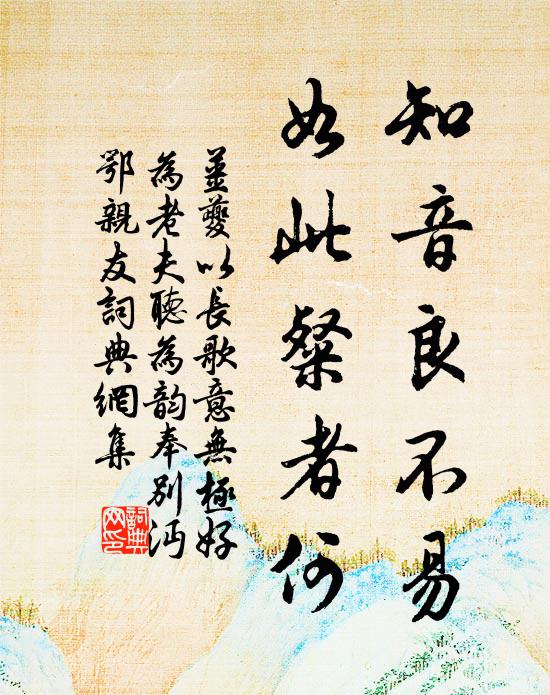 知音良不易
如此粲者何
姜夔以長歌意無極好
為老夫聽為韵奉別沔
鄂親友詞典網集
詞典网印